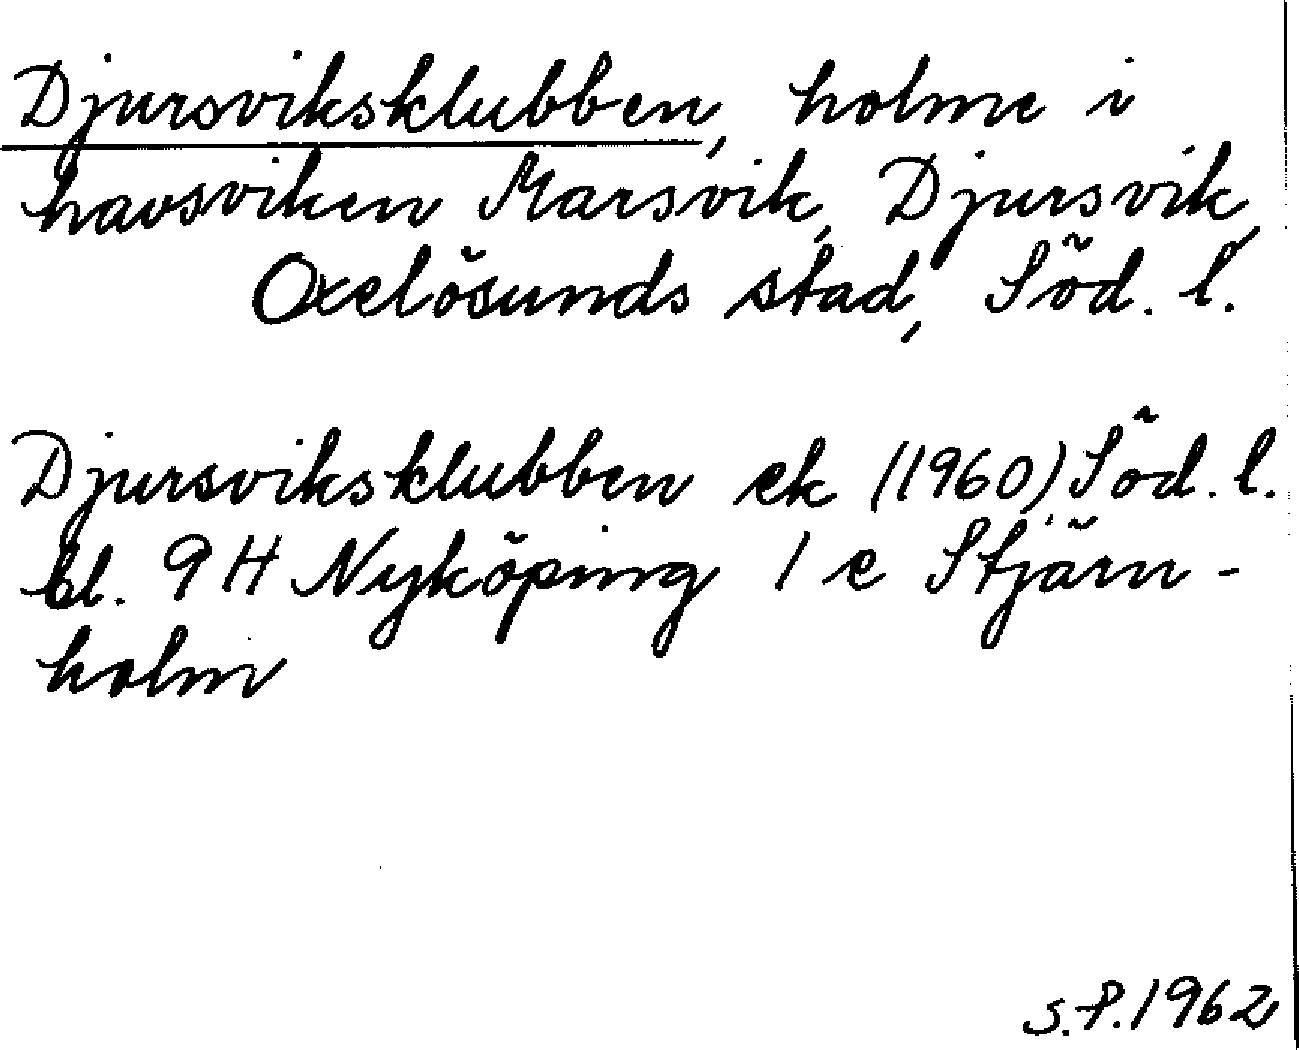 Djursviksklubben, holme i
havsviken Marsvik, Djursvik,
Oxelösunds stad, Söd. l.
Djursviksklubben ek (1960) Söd. l.
bl. 9H Nyköping 1 e Stjärn-
holm
S.P. 1962